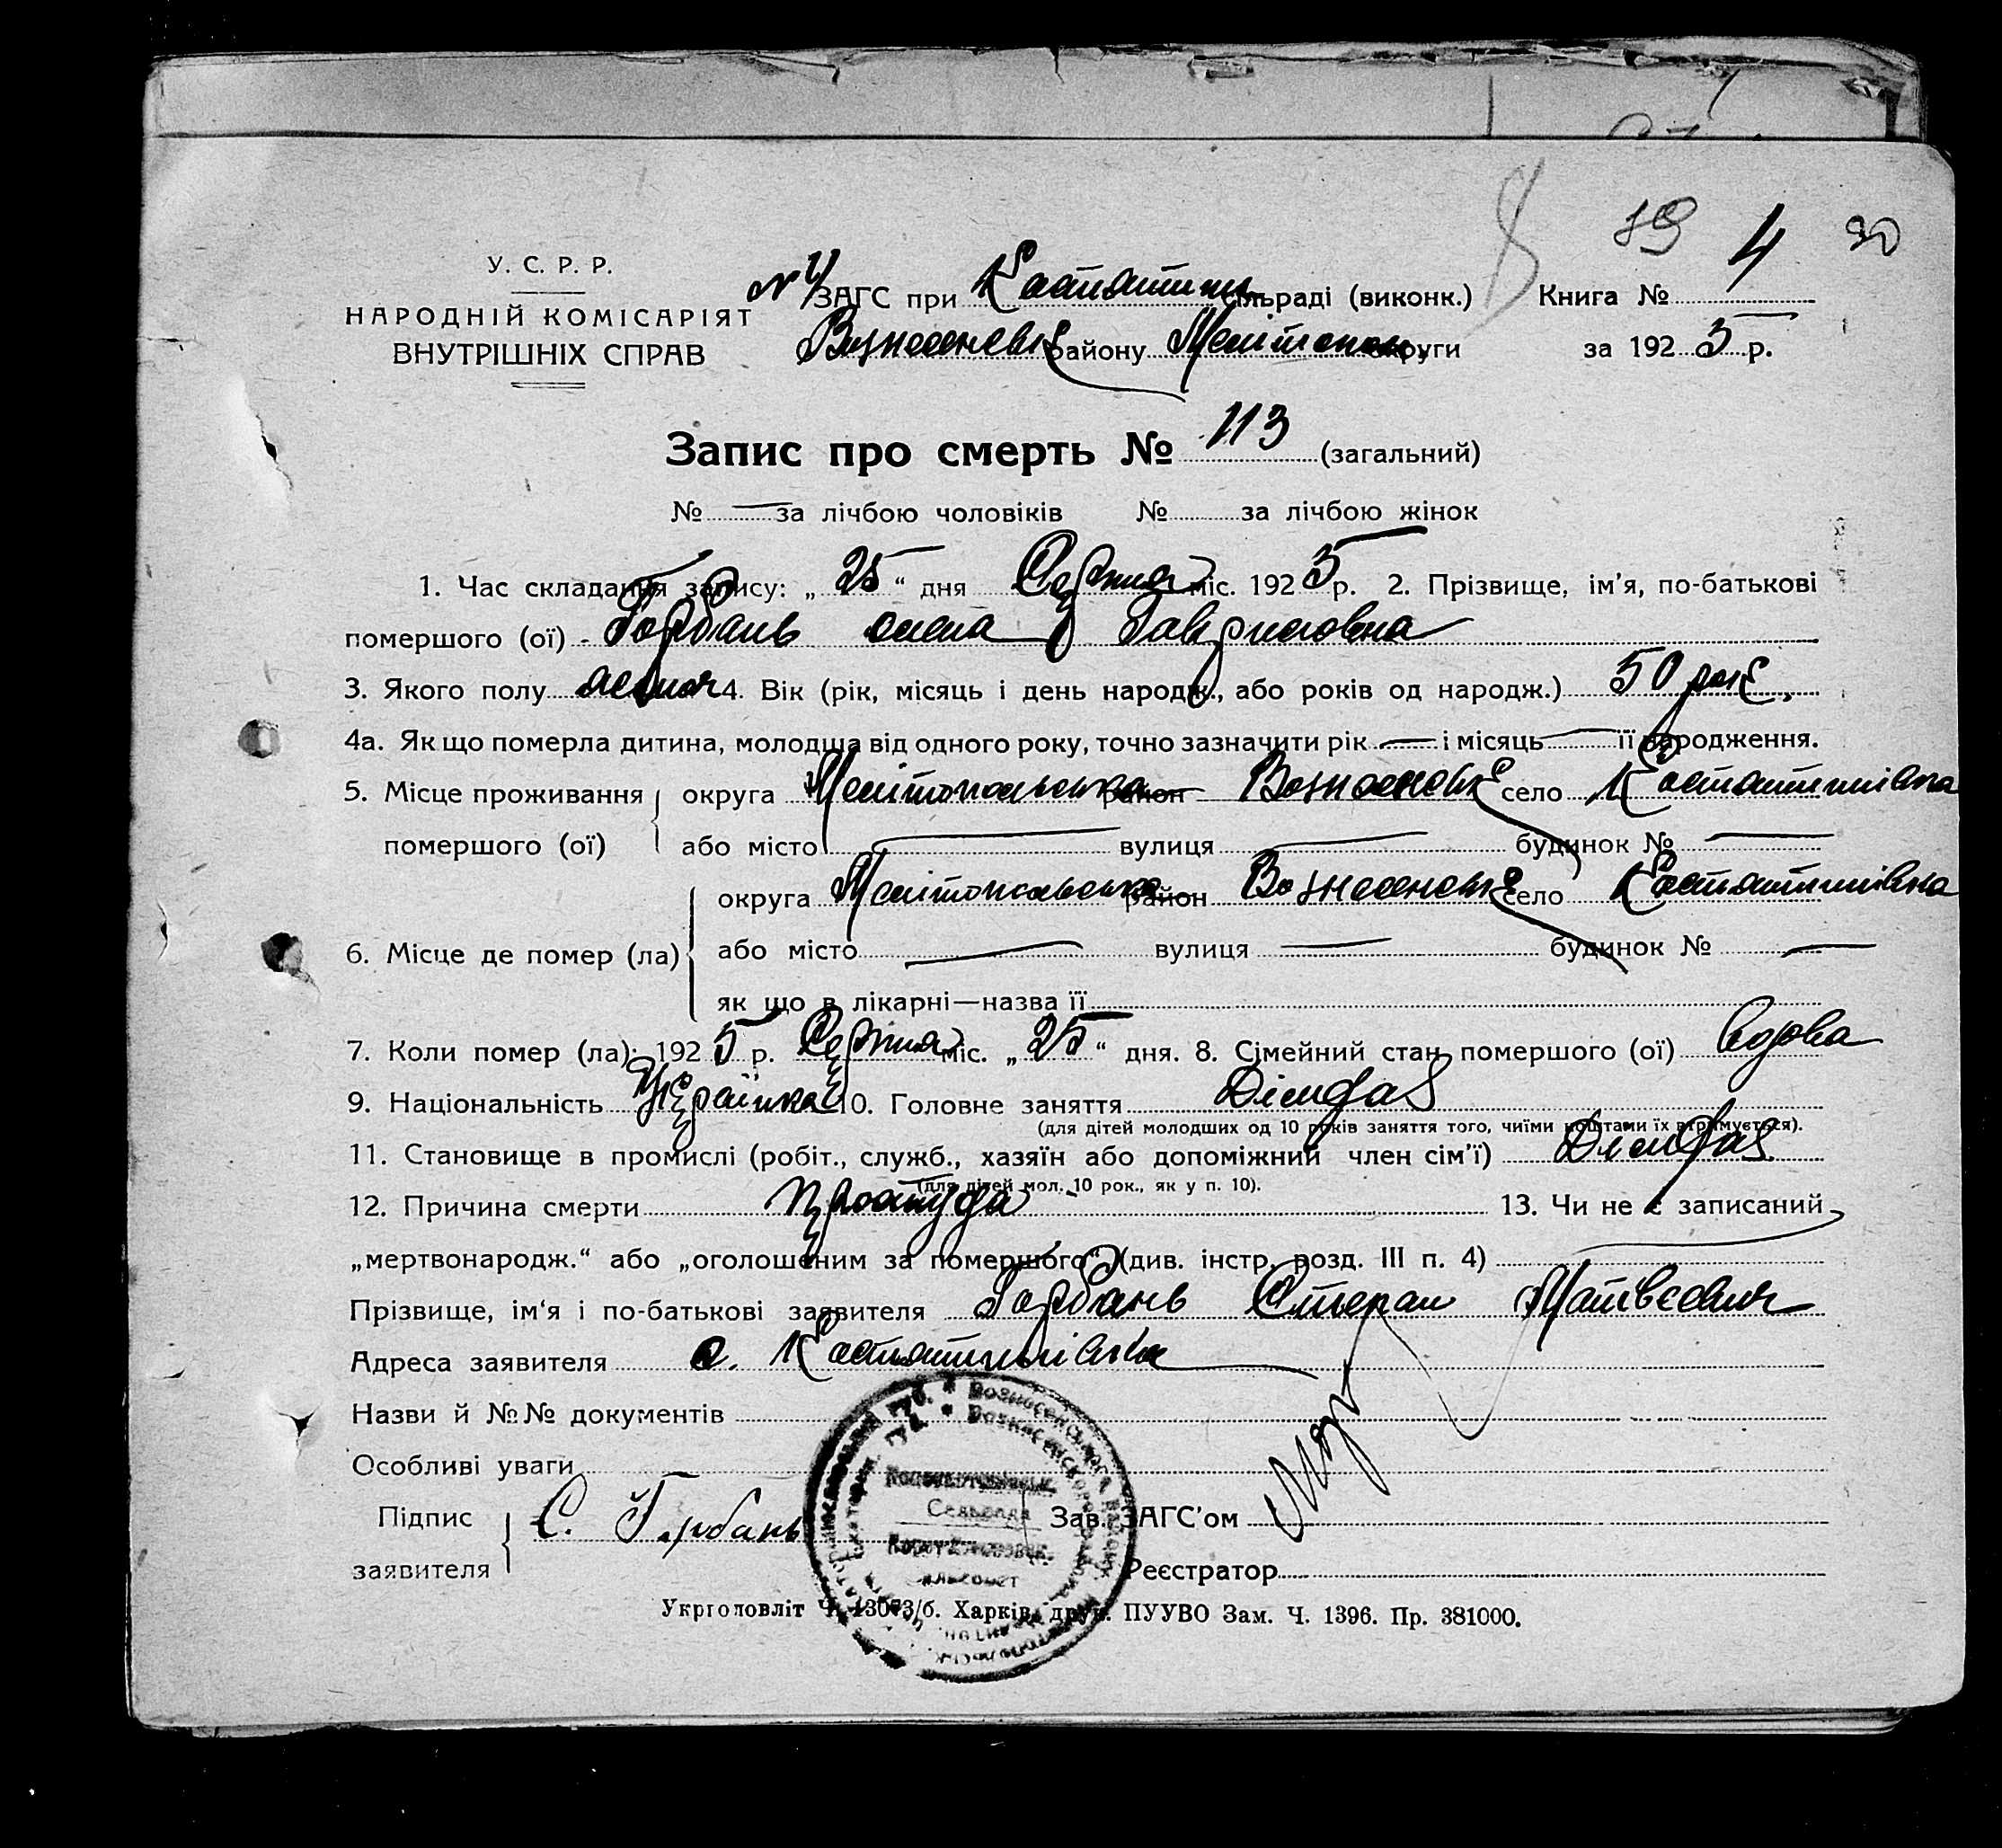 19 4 30
У. С. Р. Р.
НАРОДНІЙ КОМІСАРІЯТ
ВНУТРІШНІХ СПРАВ
ЗАГС при Костянтин сільраді (виконк.) Книга № 4
Вознесенськ району Мелітопол. округи за 1925 р.
Запис про смерть № 113 (загальний)
№ — за лічбою чоловіків № за лічбою жінок
1. Час складання запису: „ 25 “ дня Серпня міс. 1925 р. 2. Прізвище, ім'я, по-батькові
помершого (ої) Горбань Олена Гавриловна
3. Якого полу 4. Вік (рік, місяць і день народж., або років од народж.) 50 рок.
4а. Як що померла дитина, молодща від одного року, точно зазначити рік — і місяць — її народження.
5. Місце проживання округа Мелітопольська район Вознесенськ село Костянтинівка
помершого (ої) або місто — вулиця — будинок № —
округа Мелітопольська район Вознесенськ село Костянтинівка
6. Місце де помер (ла) або місто — вулиця — будинок № —
як що в лікарні—назва її
7. Коли помер (ла): 1925 р. Серпня міс. „ 25 “ дня. 8. Сімейний стан помершого (ої) вдова
9. Національність Українка 10. Головне заняття
(для дітей молодших од 10 років заняття того, чиїми коштами їх втримується).
11. Становище в промислі (робіт., служб., хазяїн або допоміжний член сім'ї)
(для дітей мол. 10 рок., як у п. 10).
12. Причина смерти простуда 13. Чи не є записаний
„мертвонародж.“ або „оголошеним за помершого“ (див. інстр. розд. III п. 4)
Прізвище, ім'я і по-батькові заявителя Горбань Степан Матвєєвич
Адреса заявителя с. Костянтинівка
Назви й №№ документів
Особливі уваги
Підпис
заявителя С. Горбань Зав. ЗАГС'ом
Реєстратор
Укрголовліт Ч. 13073/б. Харків, друк. ПУУВО Зам. Ч. 1396. Пр. 381000.